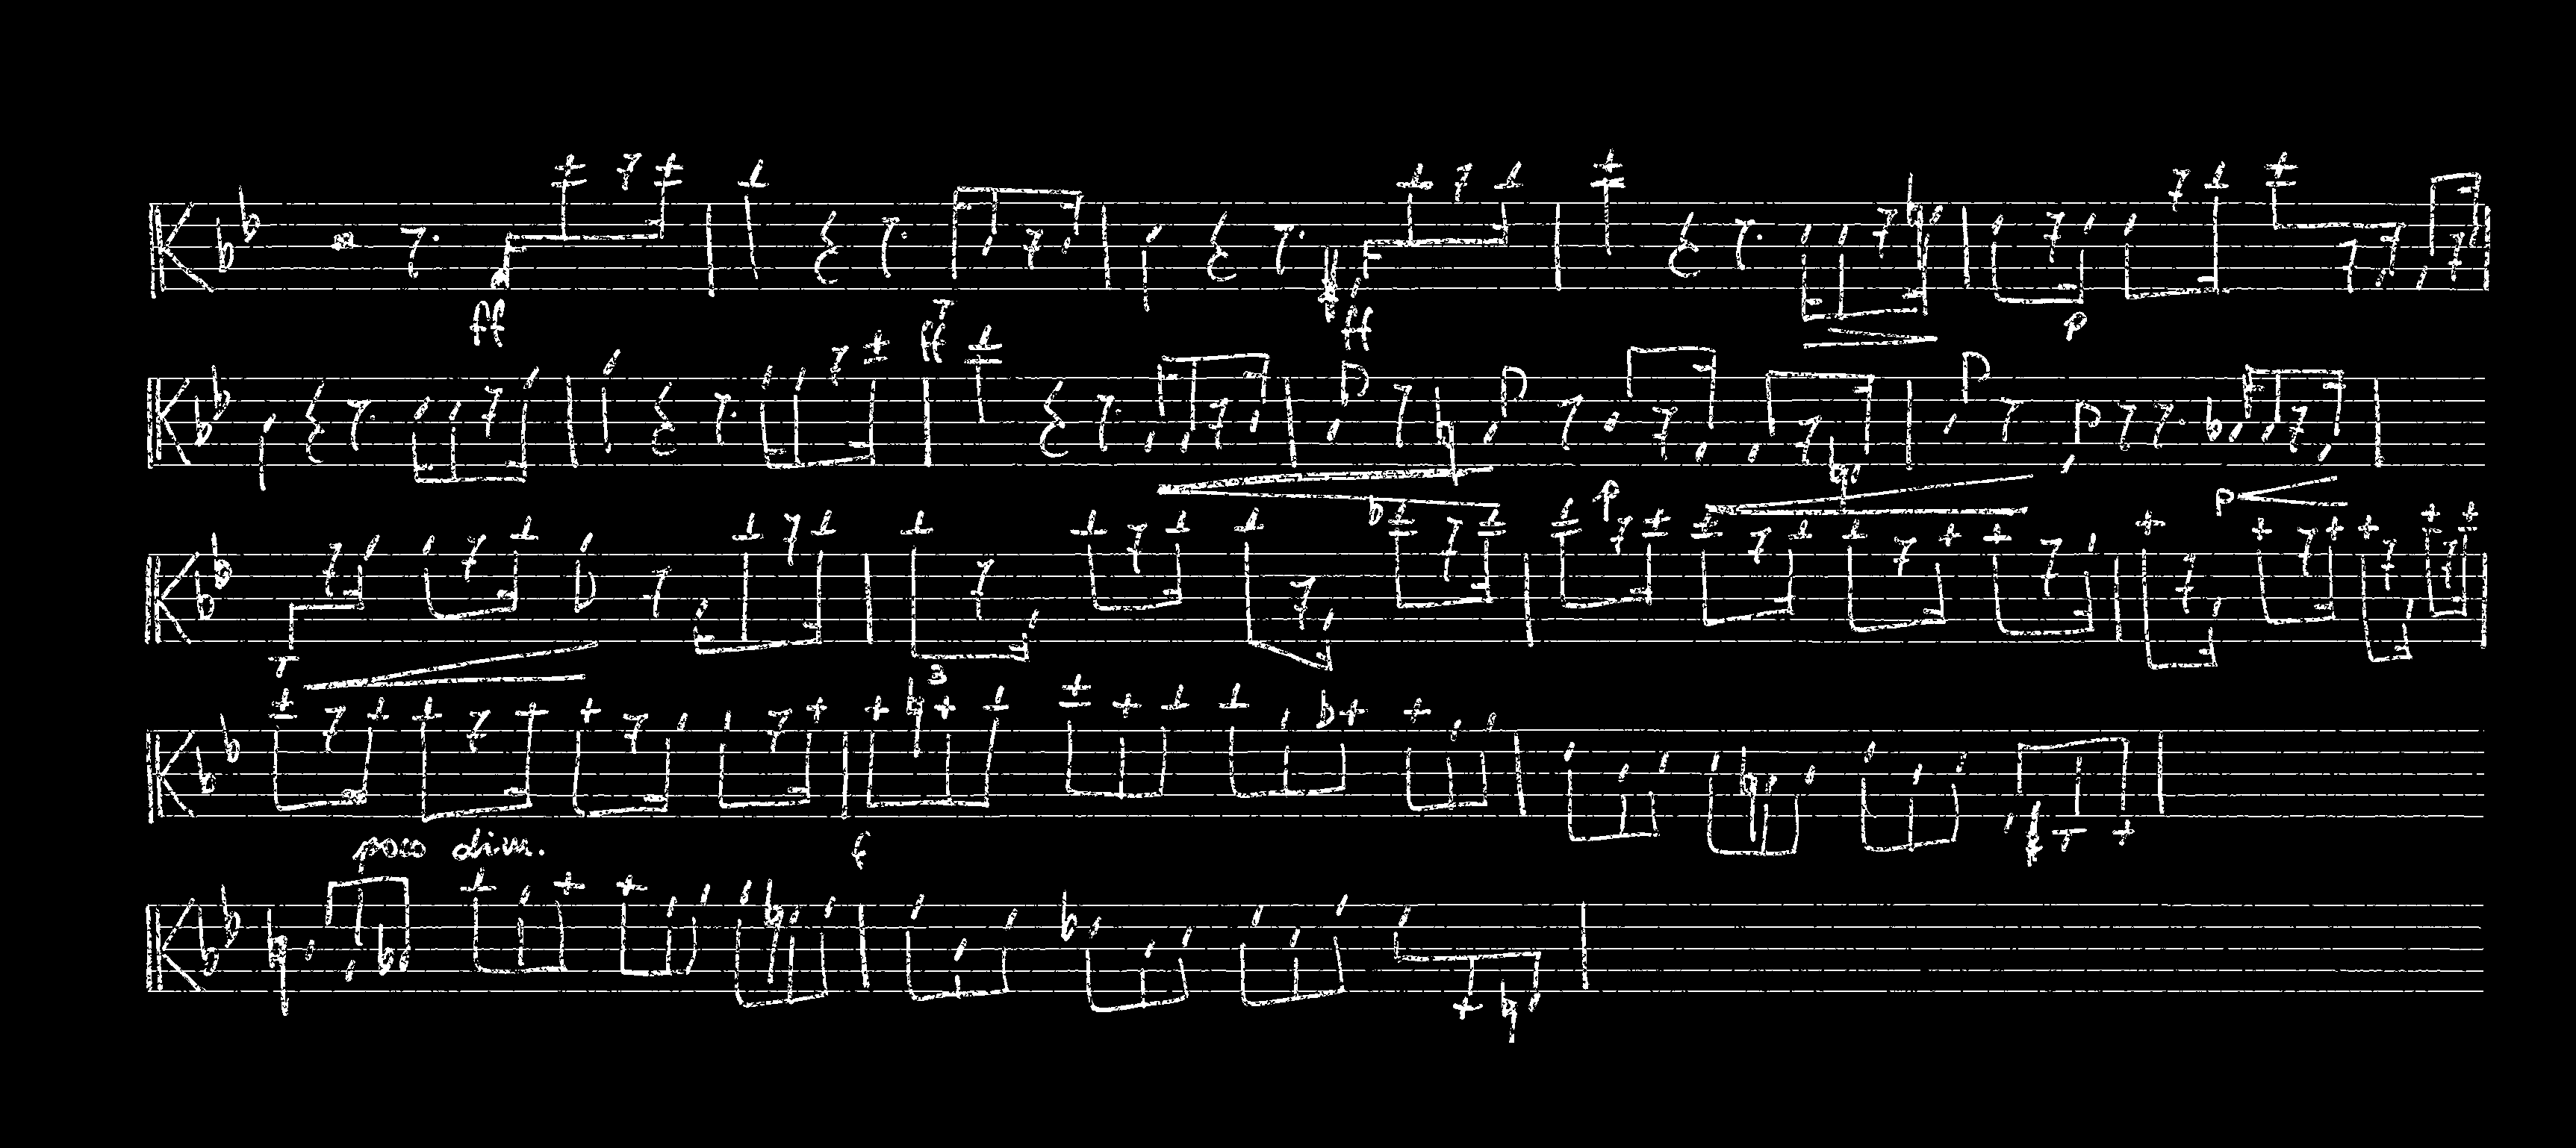 ff ff p
ff p p
3
poco dim. f